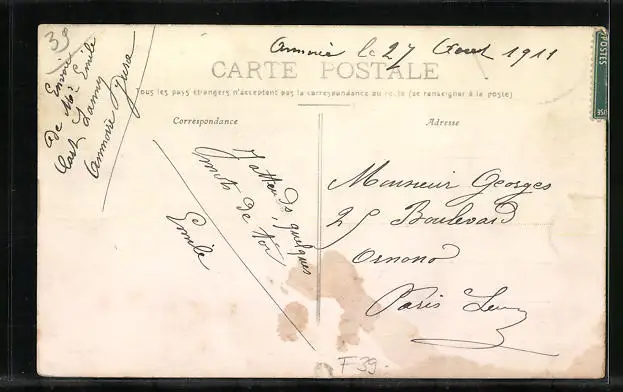 39
Envoi
de Mr Emile
Cart Lanny
Annoire Jura
Annoire le 27 Aout 1911
CARTE POSTALE
Tous les pays étrangers n'acceptent pas la correspondance au recto (se renseigner à la poste)
Correspondance
Adresse
J'attends quelques
mots de toi
Emile
Monsieur Georges
25 Boulevard
Ornono
Paris
F 39.
POSTES